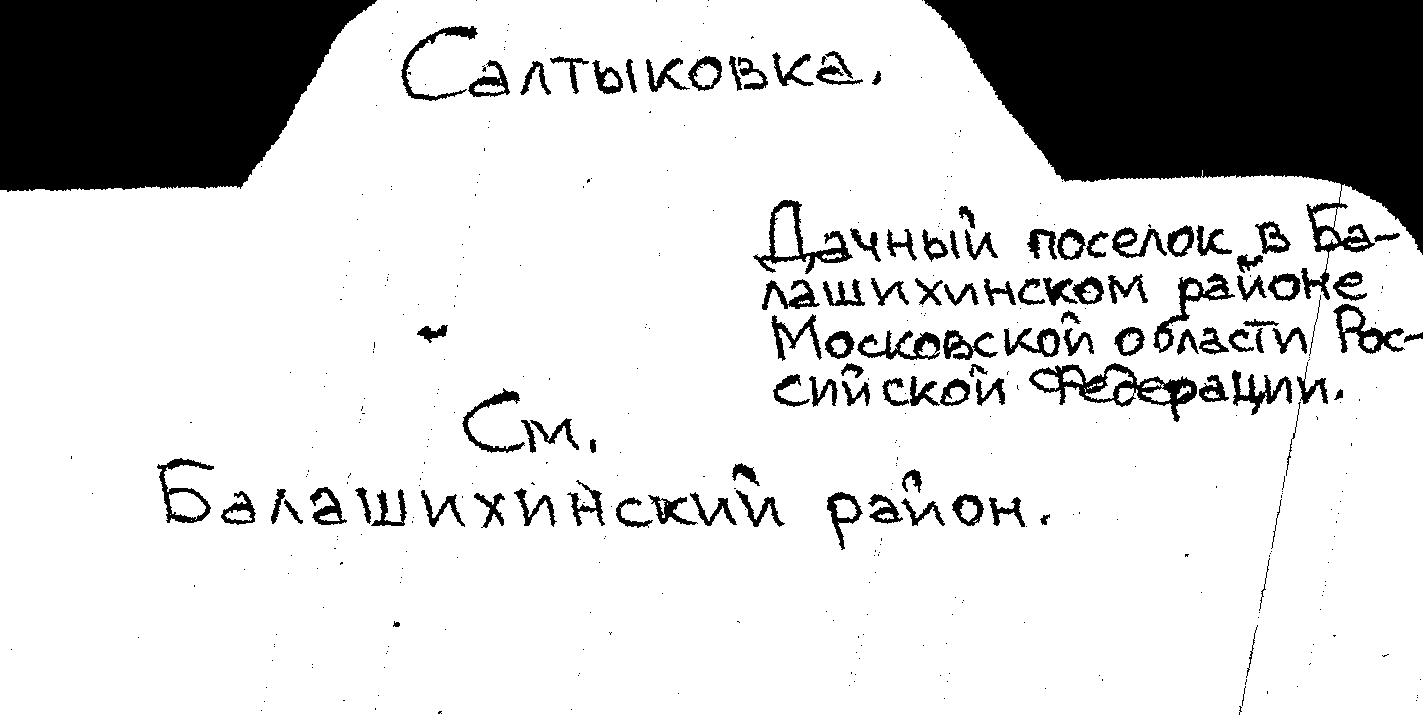 Салтыковка.
Дачный поселок в Ба-
лашихинском районе
Московской области Рос-
сийской Федерации.
См.
Балашихинский район.